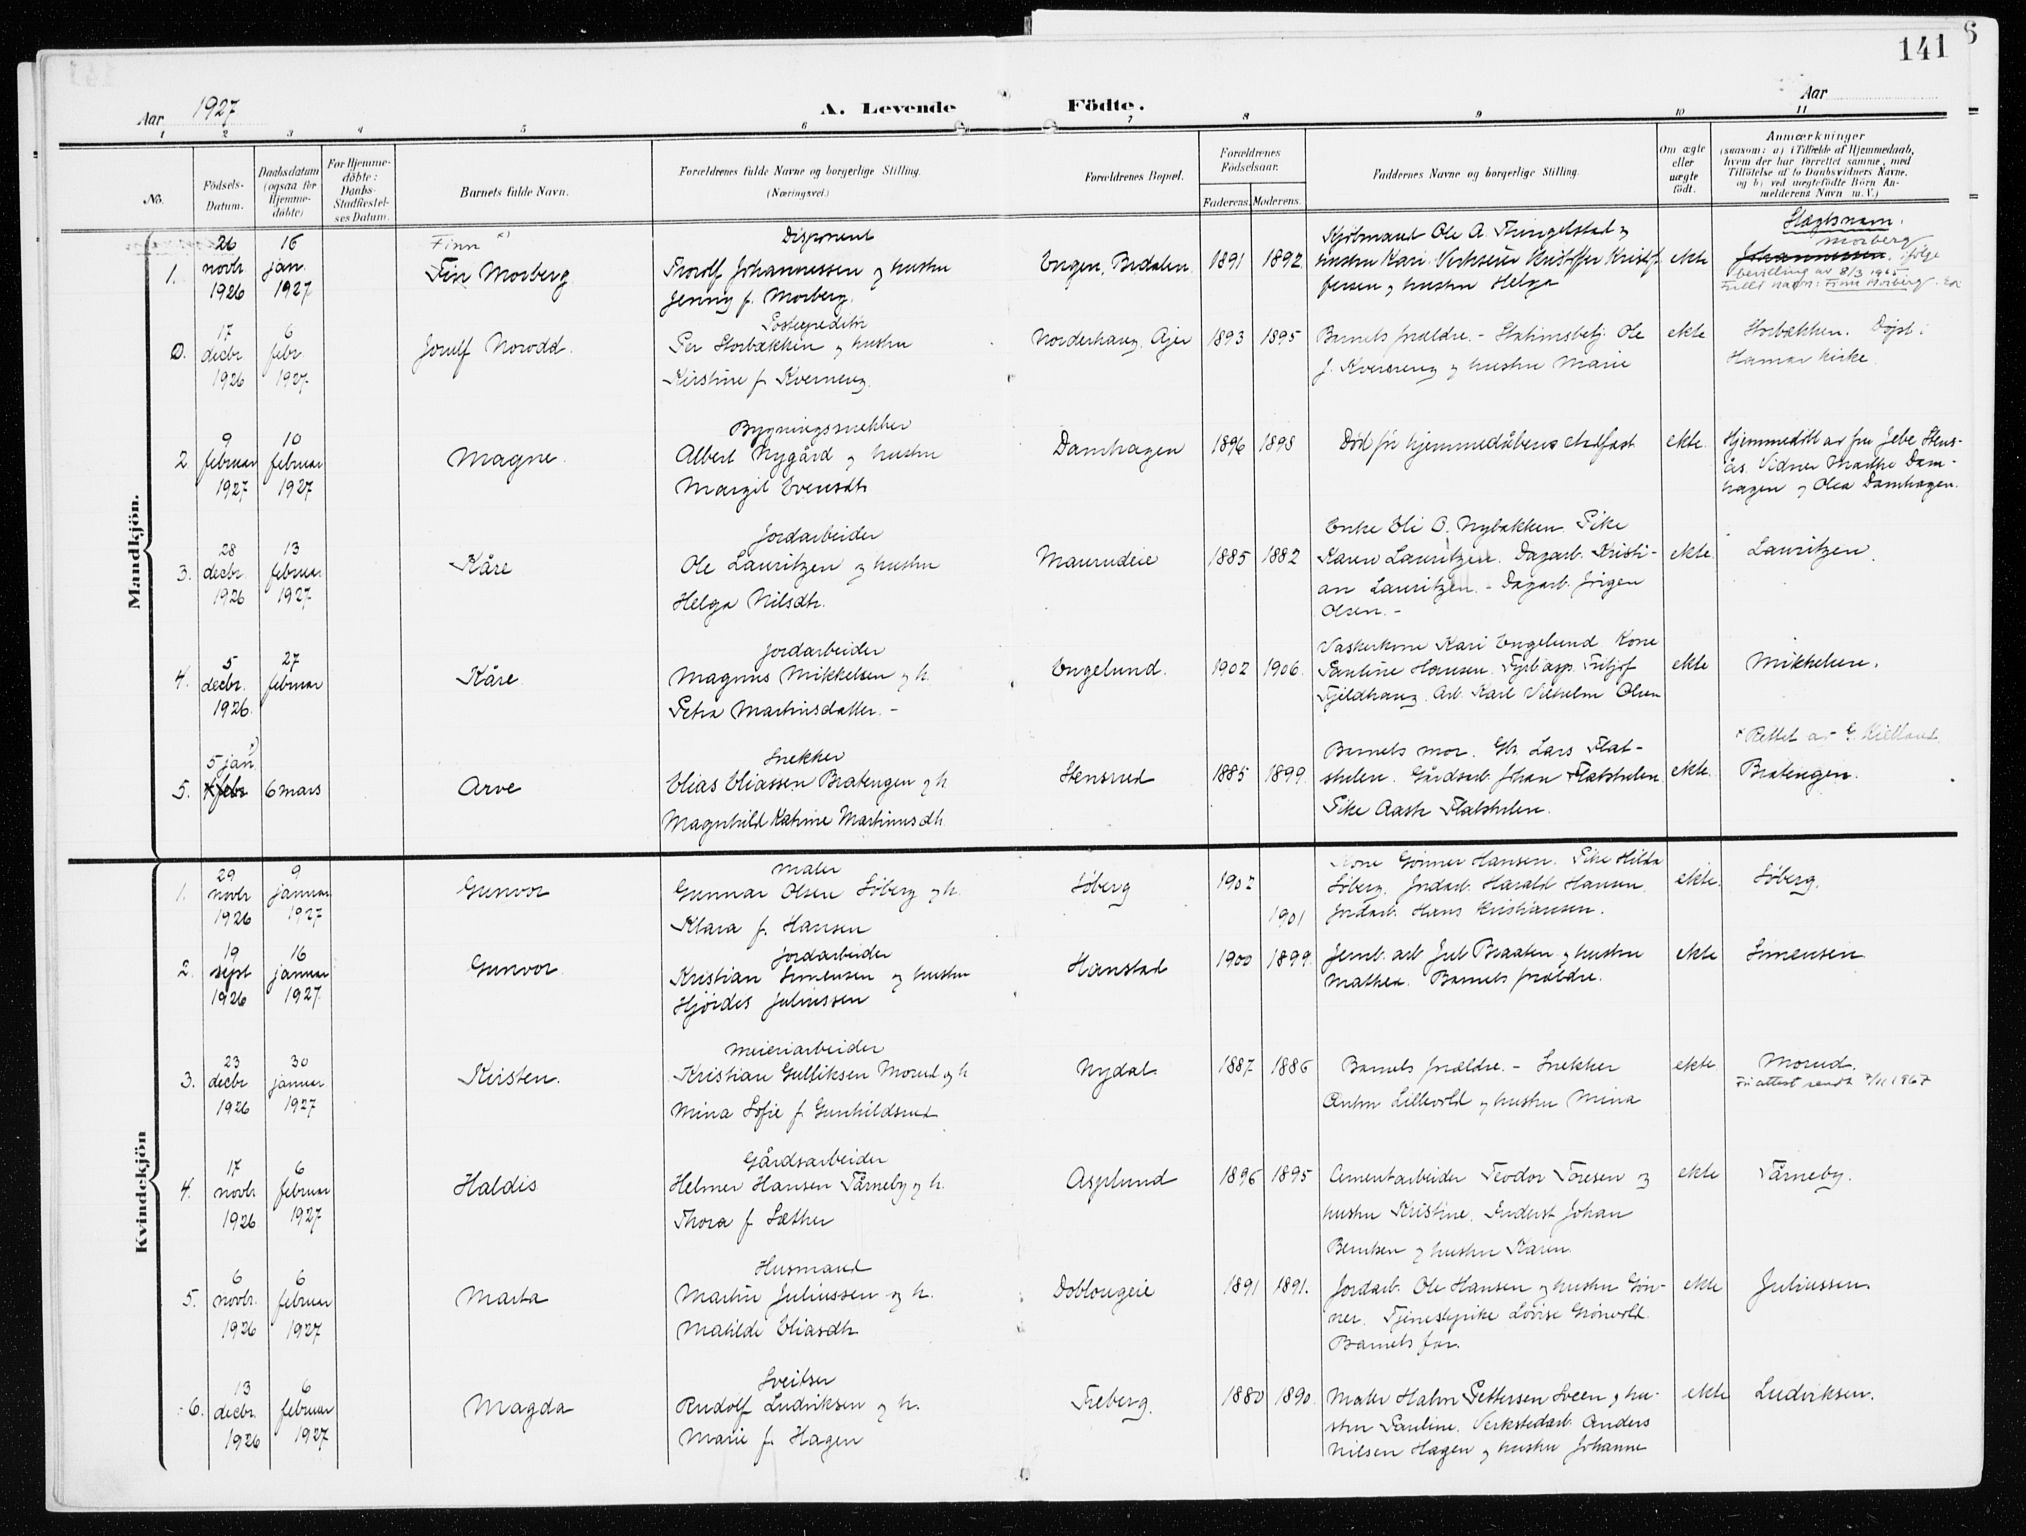 141
Aar 1927
A. Levende Födte.
Aar
1 2 3 4 5 6 7 8 9 10 11
No.
Födsels-
Datum.
Daabsdatum
(ogsaa for
Hjemme-
döbte)
For Hjemme-
döbte:
Daabs-
Stadfæstel-
ses Datum.
Barnets fulde Navn.
Forældrenes fulde Navne og borgerlige Stilling.
(Næringsvei.)
Forældrenes Bopæl.
Forældrenes
Födselsaar.
Faderens. Moderens.
Faddernes Navne og borgerlige Stilling.
Om ægte
eller
uægte
födt.
Anmærkninger
(saasom: a) i Tilfælde af Hjemmedaab,
hvem der har forrettet samme, med
Tilföielse af to Daabsvidners Navne,
og b) ved uægtefödte Börn An-
melderens Navn m. V.)
Mandkjön.
1.
26
novbr
1926
16
jan.
1927
Finn x)
Finn Morberg
Disponent
Thorolf Johannessen og hustru
Jenny f. Morberg.
Engen, Brdalen
1891 1892
Kjøbmand Ole A. Tingelstad og
hustru Kari. Verkseier Kristoffer Kristof-
fersen og hustru Helga
ekte
Slægtsnavn.
Morberg
Johannessen. ifølge
bevilling av 8/3 1965.
Fullt navn: Finn Morberg.
0.
17
decbr
1926
6
febr.
1927
Jorulf Norodd.
Postexpeditør
Per Storbækken og hustru
Kirstine f. Kverneng.
Norderhaug, Ajer
1893 1895
Barnets forældre. – Stationsbetj. Ole
J. Kverneng og hustru Marie
ekte
Storbækken. Døpt i
Hamar kirke.
2
9
februar
1927
10
februar
1927
Magne.
Bygningssnekker
Albert Nygård og hustru
Margit Evensdtr.
Damhagen
1896 1898
Død før hjemmedåbens stadfest
ekte.
Hjemmedøbt av fru Jebe Stens-
ås. Vidner Marthe Dam-
hagen og Olea Damhagen.
3.
28
decbr
1926
13
februar
1927
Kåre
Jordarbeider
Ole Lauritzen og hustru
Helga Nilsdtr.
Maurudeie
1885 1882
Enke Eli O. Nybakken Pike
Karen Lauritzen. Dagarb. Kristi-
an Lauritzen. – Dagarb. Jörgen
Olsen. –
ekte.
Lauritzen.
4.
5
decbr.
1926.
27
februar
Kåre
Jordarbeider
Magnus Mikkelsen og h.
Petra Martinsdatter. –
Engelund.
1902 1906.
Vaskerkone Kari Engelund Kone
Pauline Hansen. Fyrb.asp. Fritjof
Fjeldhaug. Arb. Karl Vilhelm Olsen
ekte
Mikkelsen.
5.
5 jan. x)
febr
6 mars
Arve
Snekker
Elias Eliassen Bratengen og h
Magnhild Katrine Martinusdtr.
Stensrud
1885 1899.
Barnets mor. Gbr Lars Flat-
stulen. Gårdsarb. Johan Flatstulen
Pike Aasta Flatstulen.
ekte.
x Rettet av G. Kielland.
Bratengen.
Kvindekjön
1.
29
novbr
1926
9
januar
1927
Gunvor
Maler
Gunnar Olsen Söberg og h.
Klara f. Hansen
Söberg
1902
1901
Kone Gönner Hansen. Pike Hilda
Söberg. Jordarb. Harald Hansen.
Jordarb. Hans Kristiansen.
ekte.
Söberg.
2.
19
sept
1926
16
januar
1927.
Gunvor.
Jordarbeider
Kristian Simensen og hustru
Hjördis Juliussen
Hanstad
1900 1899.
Jernb. arb Jul Braaten og hustru
Mathea. Barnets forældre.
ekte
Simensen
3.
23
decbr
1926
30
januar
1927
Kirsten.
Meieriarbeider
Kristian Gulliksen Morud og h
Mina Sofie f Gunhildsrud
Nydal.
1887 1886
Barnets forældre. – Snekker
Anton Lillevold og hustru Mina
ekte
Morud.
Fri attest sendt 7/11 1967
4.
17
novbr.
1926
6
februar
1927
Haldis
Gårdsarbeider
Helmer Hansen Tårneby og h.
Thora f. Sæther
Asplund
1896 1895
Cementarbeider Teodor Toresen og
hustru Kristine. Inderst Johan
Berntsen og hustru Karen.
ekte
Tårneby.
5.
6
novbr.
1926
6
februar
1927
Marta
Husmand
Martin Juliussen og h.
Matilde Eliasdtr.
Doblougeie
1891 1891.
Jordarb. Ole Hansen og hustru Gön-
ner. Tjenestepike Lovise Grönvold
Barnets far.
ekte
Juliussen.
6.
13
decbr.
1926
6
februar
1927
Magda
Sveitser
Rudolf Ludviksen og h.
Marie f. Hagen
Freberg.
1880 1890.
Maler Halvor Pettersen Sveen og hu-
stru Pauline. Verkstedarb. Anders
Nilsen Hagen og hustru Johanne
ekte
Ludviksen.